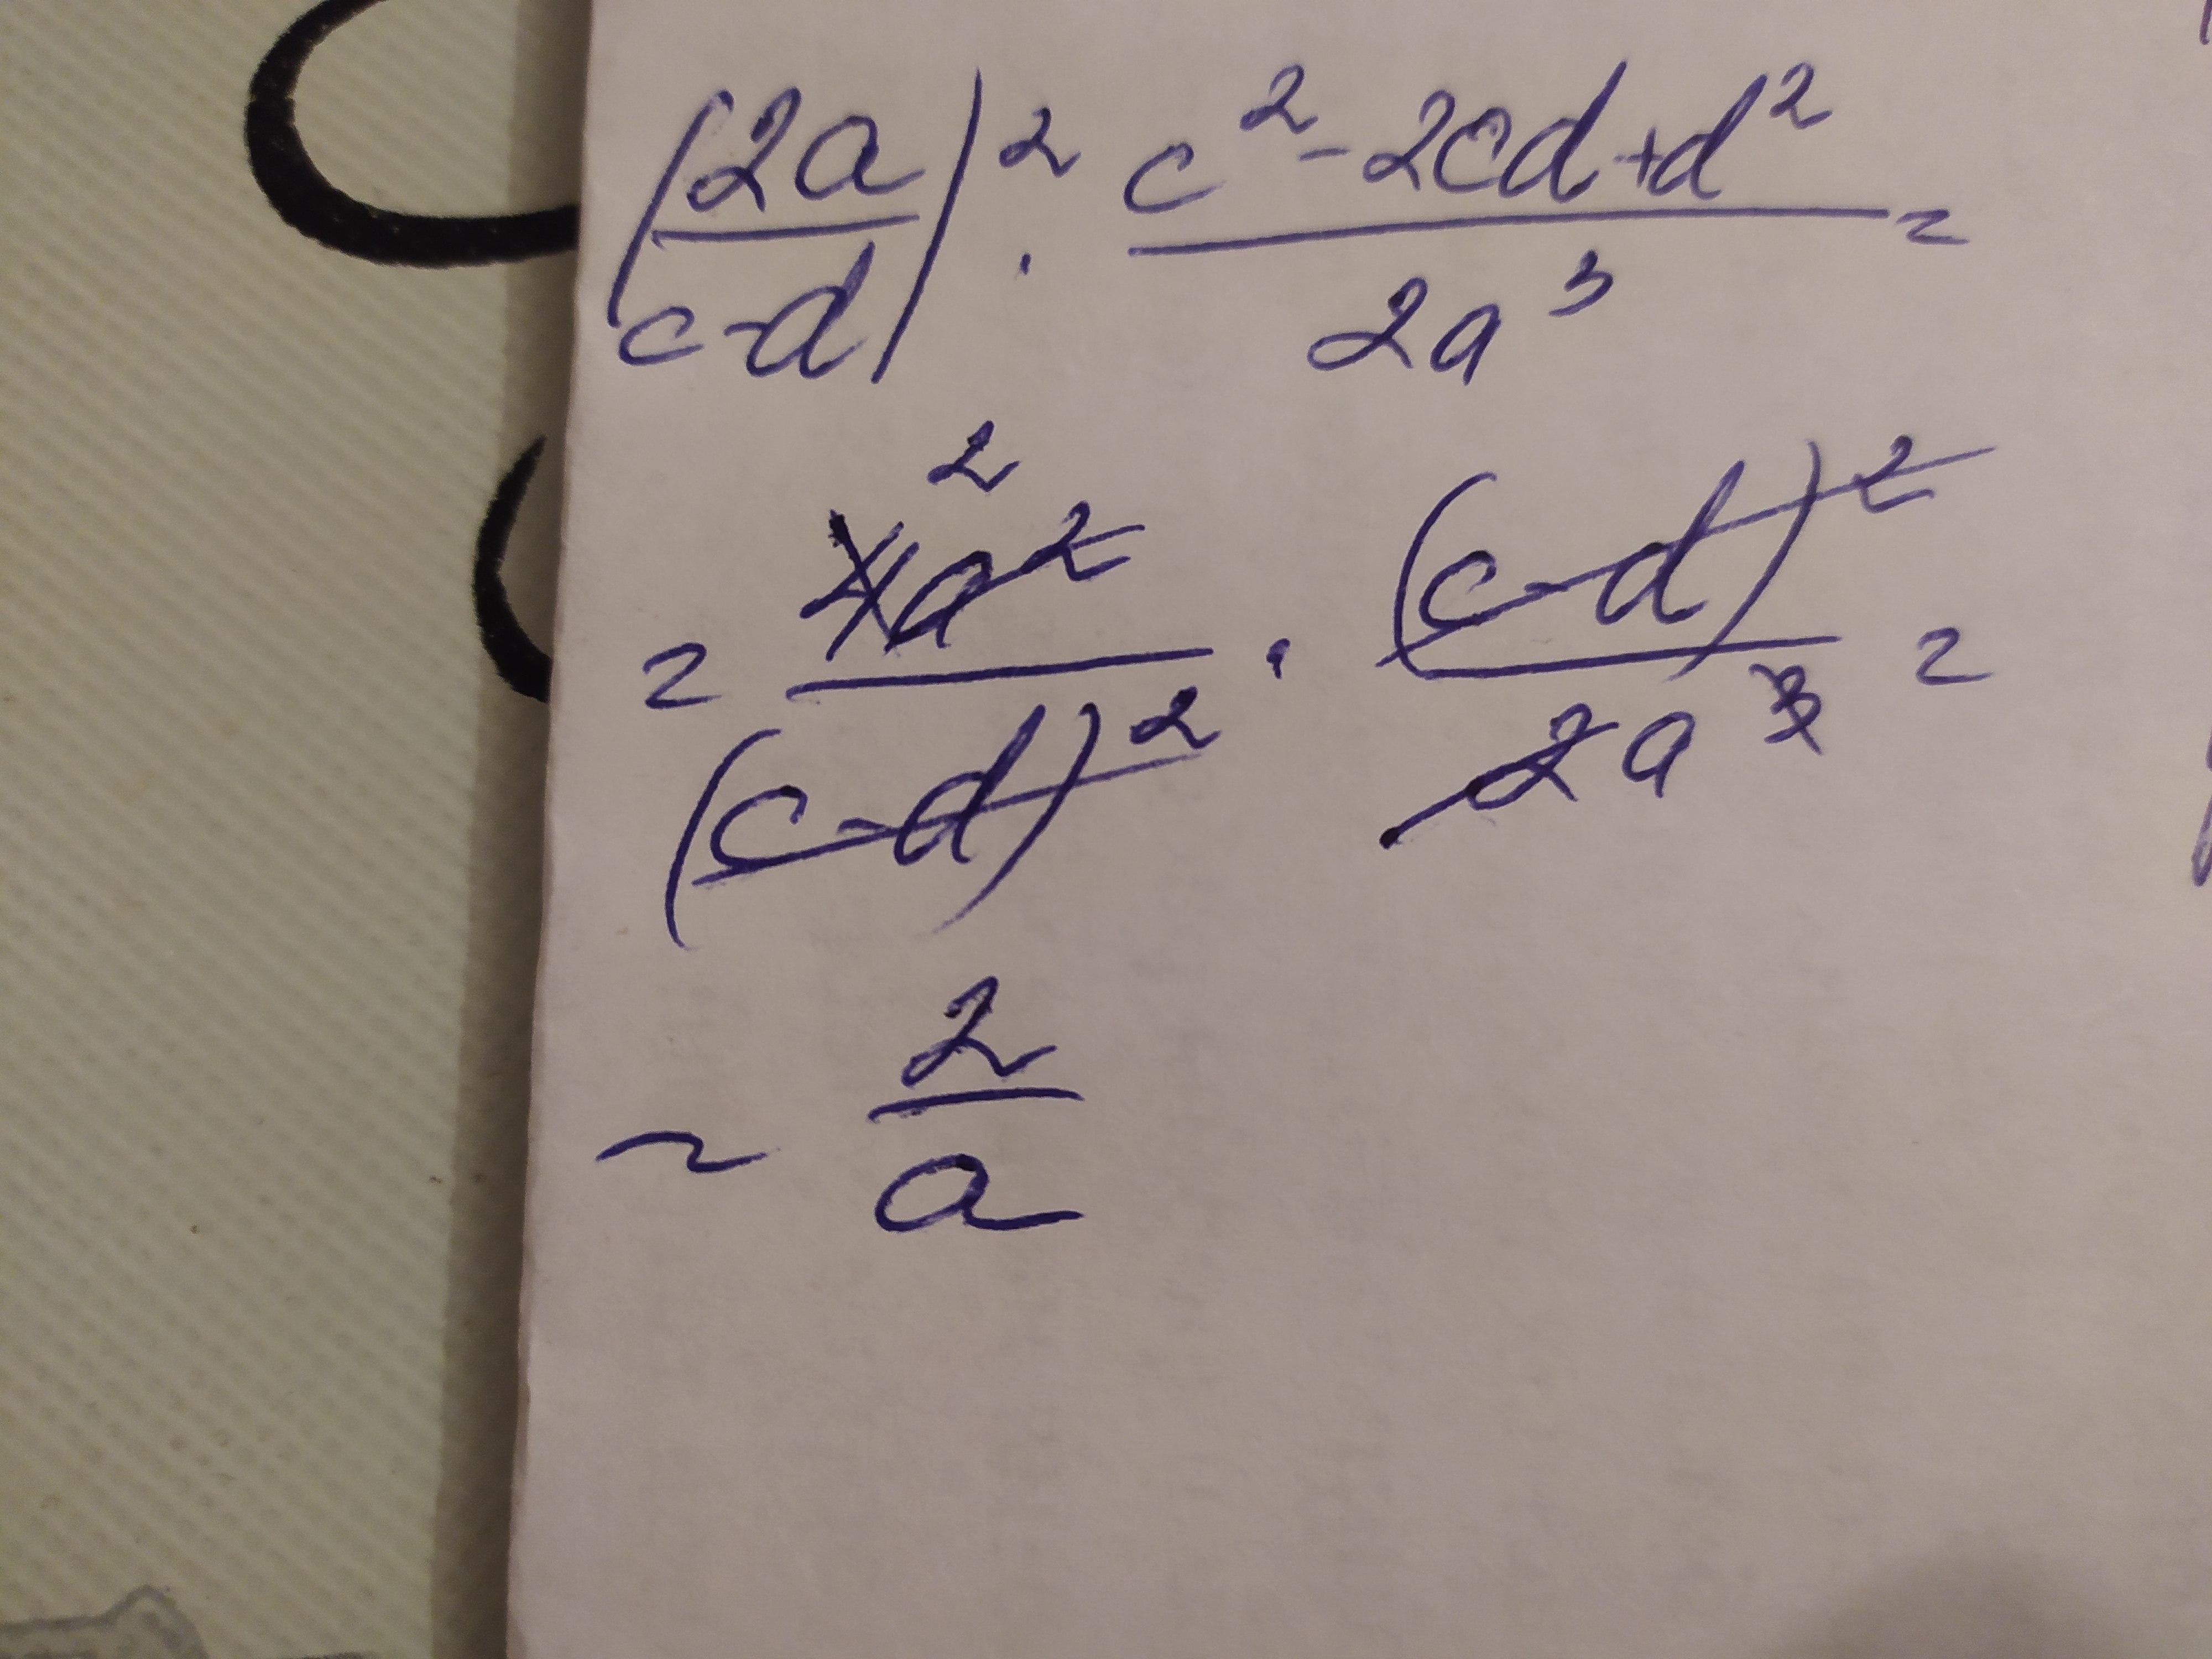 (2a/(c-d))² · (c²-2cd+d²)/(2a³) =
= 4a²/(c-d)² · (c-d)²/(2a³) =
= 2/a